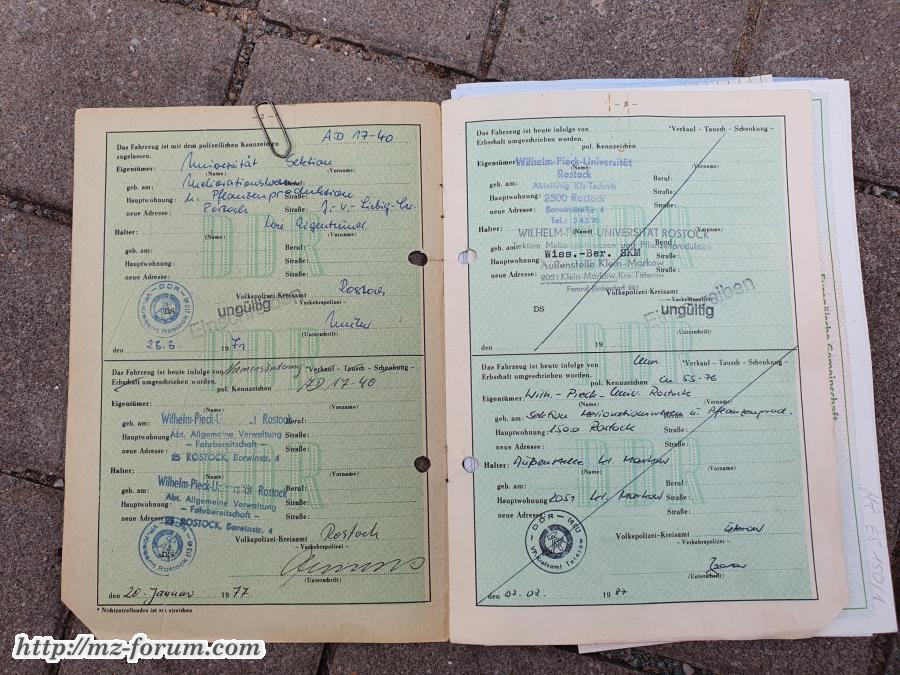 - 2 -
Das Fahrzeug ist mit dem polizeilichen Kennzeichen AD 17-40
zugelassen.
Eigentümer: Universität Sektion
(Name) (Vorname)
geb. am: Meliorationswesen Beruf:
Hauptwohnung: u. Pflanzenproduktion Straße:
neue Adresse: Rostock Straße: J.-v.-Liebig-Str.
Halter: wie Eigentümer
(Name) (Vorname)
geb. am: Beruf:
Hauptwohnung: Straße:
neue Adresse: Straße:
Volkspolizei-Kreisamt Rostock
- Verkehrspolizei -
DS
ungültig
Einschreiben
(Unterschrift)
den 23.6. 19 71
Das Fahrzeug ist heute infolge von Namensänderung *Verkauf - Tausch - Schenkung -
Erbschaft umgeschrieben worden.
pol. Kennzeichen AD 17-40
Eigentümer:
(Name) (Vorname)
Wilhelm-Pieck-U Rostock
geb. am: Beruf:
Hauptwohnung: Abt. Allgemeine Verwaltung Straße:
- Fahrbereitschaft -
neue Adresse: 25 ROSTOCK, Borwinstr. 4 Straße:
Halter:
(Name) (Vorname)
Wilhelm-Pieck-Universität Rostock
geb. am: Beruf:
Abt. Allgemeine Verwaltung
Hauptwohnung: Straße:
- Fahrbereitschaft -
neue Adresse: 25 ROSTOCK, Borwinstr. 4 Straße:
Volkspolizei-Kreisamt Rostock
- Verkehrspolizei -
DS
(Unterschrift)
den 20. Januar 19 77
* Nichtzutreffendes ist zu streichen
- 3 -
Das Fahrzeug ist heute infolge von *Verkauf - Tausch - Schenkung -
Erbschaft umgeschrieben worden.
pol. Kennzeichen
Eigentümer: Wilhelm-Pieck-Universität
(Name) (Vorname)
Rostock
geb. am: Abteilung Kfz-Technik Beruf:
Hauptwohnung: 2500 Rostock Straße:
neue Adresse: Borwinstraße 4 Straße:
Tel.: 3 43 70
Halter: WILHELM-PIECK-UNIVERSITÄT ROSTOCK
(Name) (Vorname)
Sektion Meliorationswesen und Pflanzenproduktion
geb. am: Wiss.-Ber. SKM Beruf:
Hauptwohnung: Außenstelle Klein-Markow Straße:
neue Adresse: 2051 Klein-Markow, Krs. Teterow Straße:
Volkspolizei-Kreisamt
- Verkehrspolizei -
DS
ungültig
Einschreiben
(Unterschrift)
den 19
Das Fahrzeug ist heute infolge von Um. *Verkauf - Tausch - Schenkung -
Erbschaft umgeschrieben worden.
pol. Kennzeichen CU 55-76
Eigentümer: Wilh.-Pieck-Univ. Rostock
(Name) (Vorname)
geb. am: Sektion Meliorationswesen u. Pflanzenprod.
Hauptwohnung: 2500 Rostock Straße:
neue Adresse: Straße:
Halter: Außenstelle Kl. Markow
(Name) (Vorname)
geb. am: Beruf:
Hauptwohnung: 2051 Kl. Markow Straße:
neue Adresse: Straße:
- DDR - VP Kreisamt Teterow
Volkspolizei-Kreisamt Teterow
- Verkehrspolizei -
(Unterschrift)
den 02.02. 19 87
Europäische Gemeinschaft
http://mz-forum.com